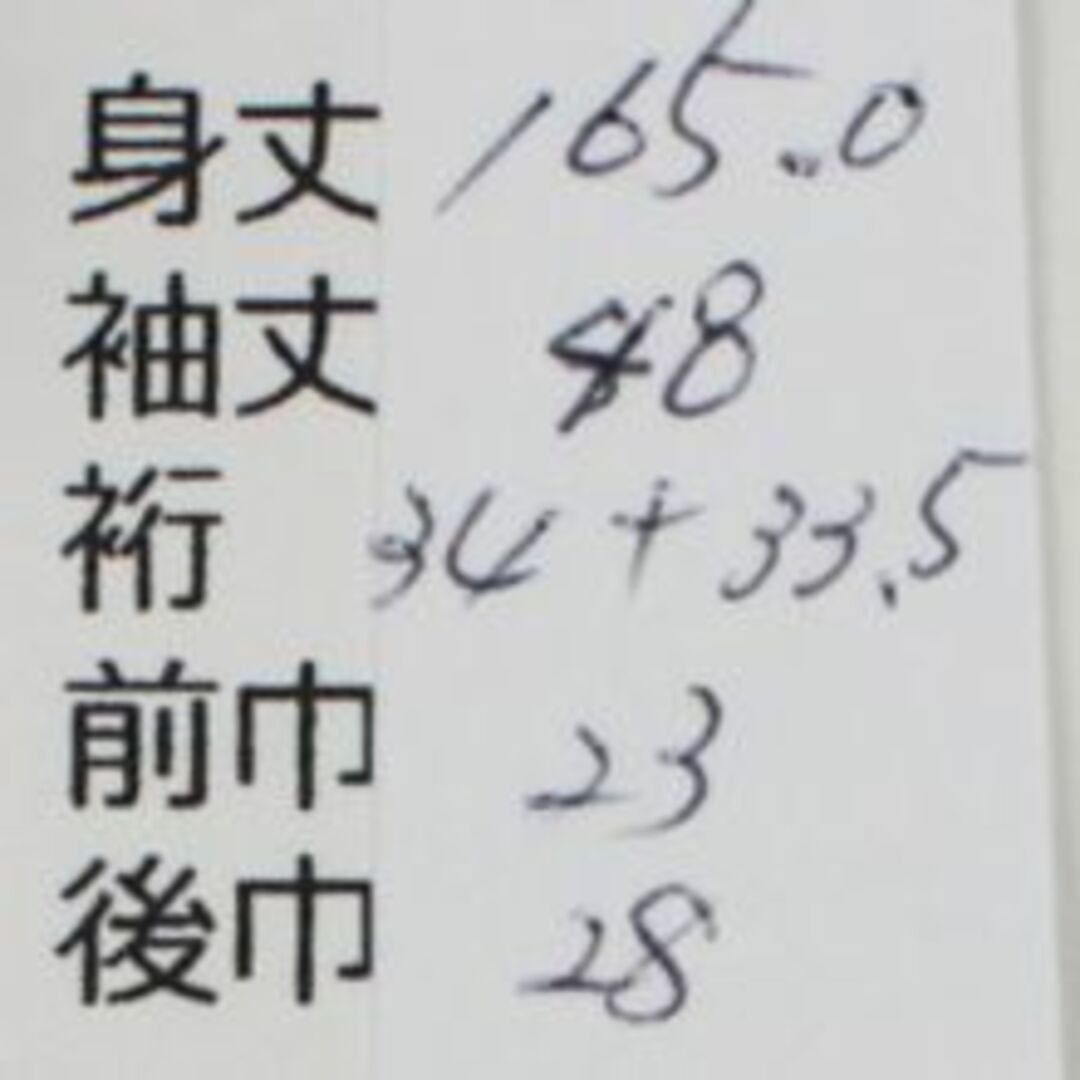 身丈 165.0
袖丈 48
裄 34+33.5
前巾 23
後巾 28